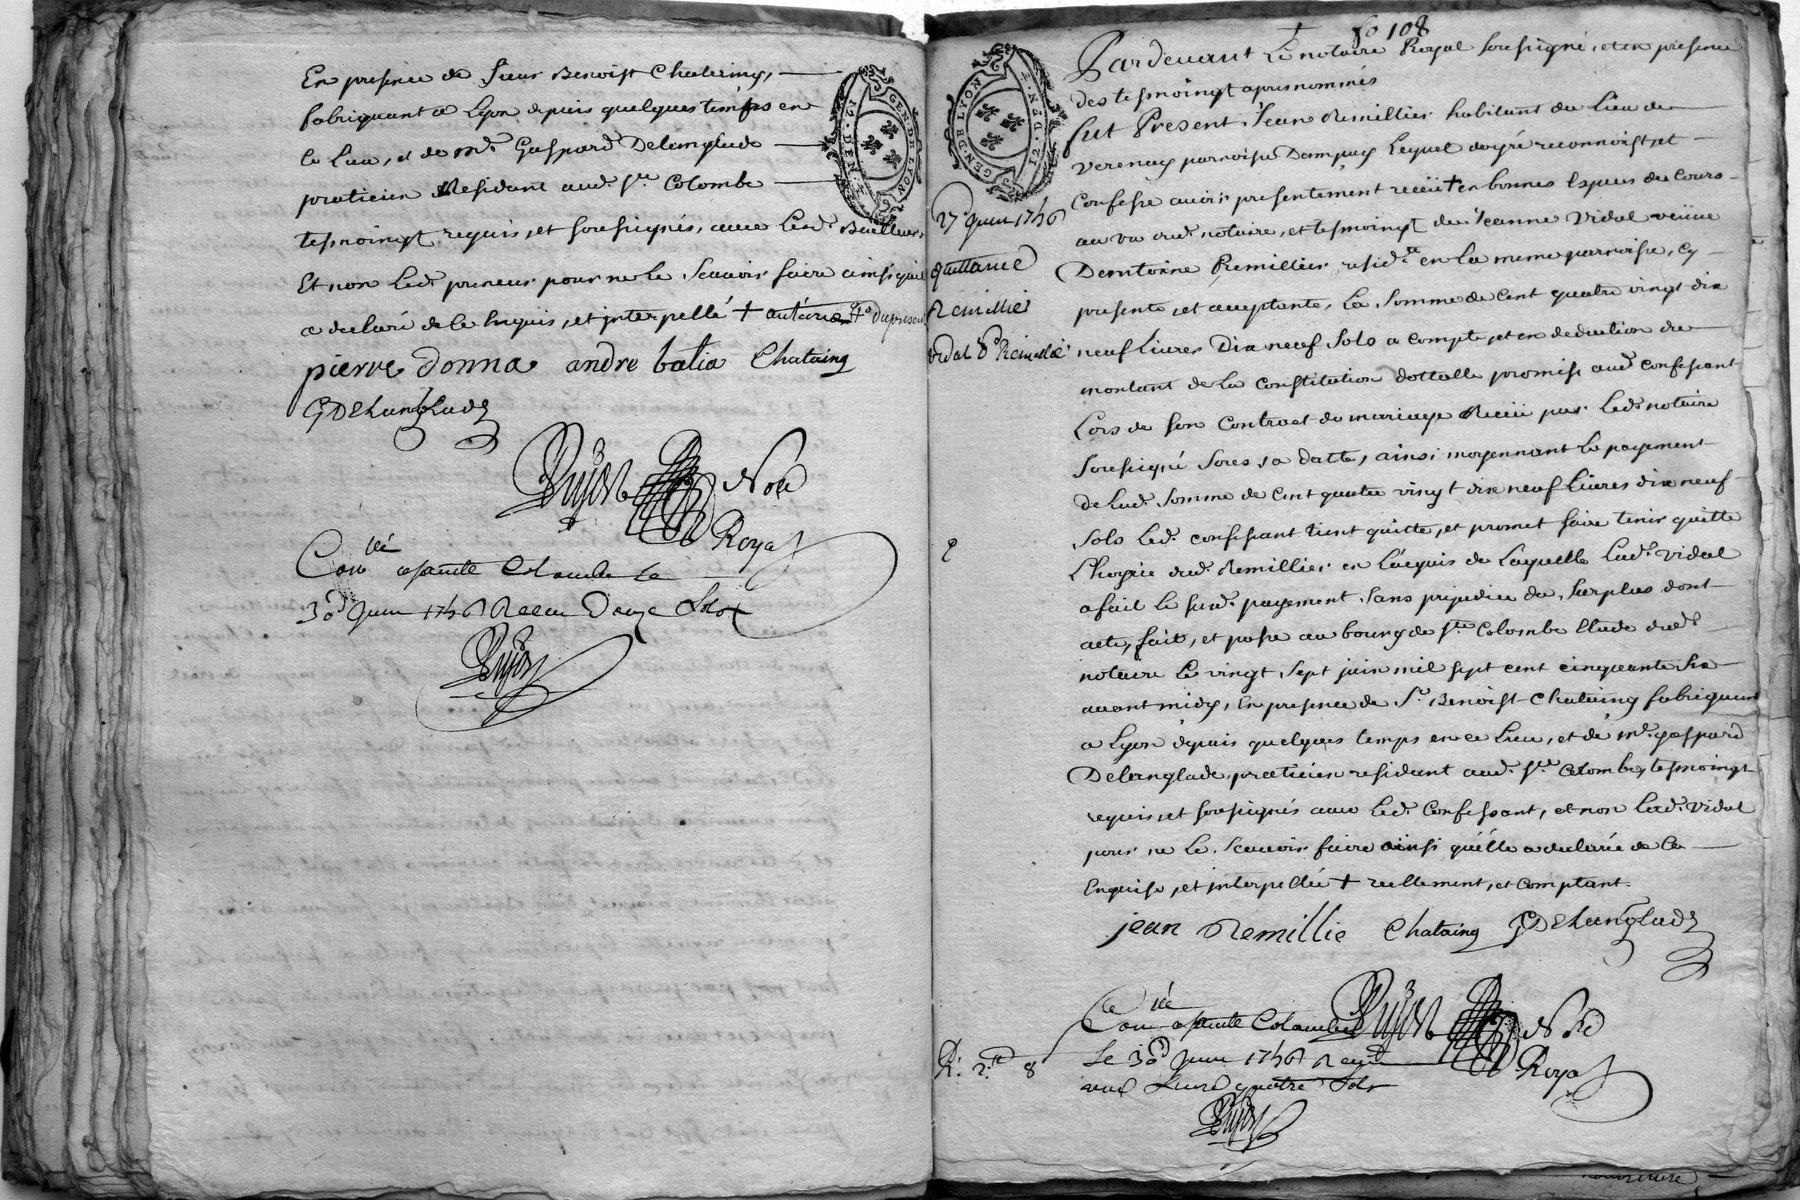 En presence de Sieur Benoist Chataing,
fabriquant a Lyon depuis quelques temps en
ce Lieu, et de Mr. Gaspard Delanglade
praticien Residant aud. Ste Colombe
tesmoingt requis, et soussignés, avec Led. Bailleur,
Et non Led. preneur pour ne le Scavoir faire ainsi quil
a declaré de ce Enquis, et interpellé +
pierre donna andre balia Chataing
GDelanglade
Dujost Nore
Royal
Conlé a sainte Colombe Le
30e Juin 1756 Receu Douze Sols
Dujost
GEN. DE LYON
12. DEN.
GEN. DE LYON
12. DEN.
27 Juin 1756
quittance
Remillie
vidal Ve Remillie
fo 108
Pardevant Le notaire Royal soussigné, et en presence
des tesmoingt apres nommés
fut Present Jean Remillier habitant du Lieu de
verenay parroisse Dampuy Lequel degré reconnoist et
Confesse avoir presentement receü + en bonnes Especes de Cours
au vu dud. notaire, et tesmoingt de Jeanne Vidal veüve
Dantoine Remillier resid.te en La meme parroisse, Cy
presente, et acceptante, La Somme de Cent quatre vingt dix
neuf Livres Dix neuf Sols a compte, et en deduction du
montant de La Constitution dottalle promise aud. confessant
Lors de son Contract de mariage Receü par Led. notaire
Soussigné Sous sa datte, ainsi moyennant Le payement
de Lad. Somme de Cent quatre vingt dix neuf Livres dix neuf
Sols Led. confessant tient quitte, et promet faire tenir quitte
L'hoyrie dud. Remillier en L'acquis de Laquelle Lad. Vidal
a fait Le susd. payement Sans prejudice du Surplus dont
acte, fait, et passé au bourg de Ste Colombe Etude dud.
notaire Le vingt Sept juin mil Sept cent cinquante Six
avant midy, En presence de Sr. Benoist Chataing fabriquant
a Lyon depuis quelques temps en ce Lieu, et de Mr. gaspard
Delanglade praticien residant aud. Ste Colombe, tesmoingt
requis, et soussignés avec Led. Confessant, et non Lad. Vidal
pour ne Le Scavoir faire ainsi quelle a declaré de Ce
Enquise, et interpellée + reellement, et comptant.
jean Remillie Chataing GDelanglade
Conlé a sainte Colombe Dujost Nore
Le 30e Juin 1756 Receu Royal
Livre quatre Sols
Dujost